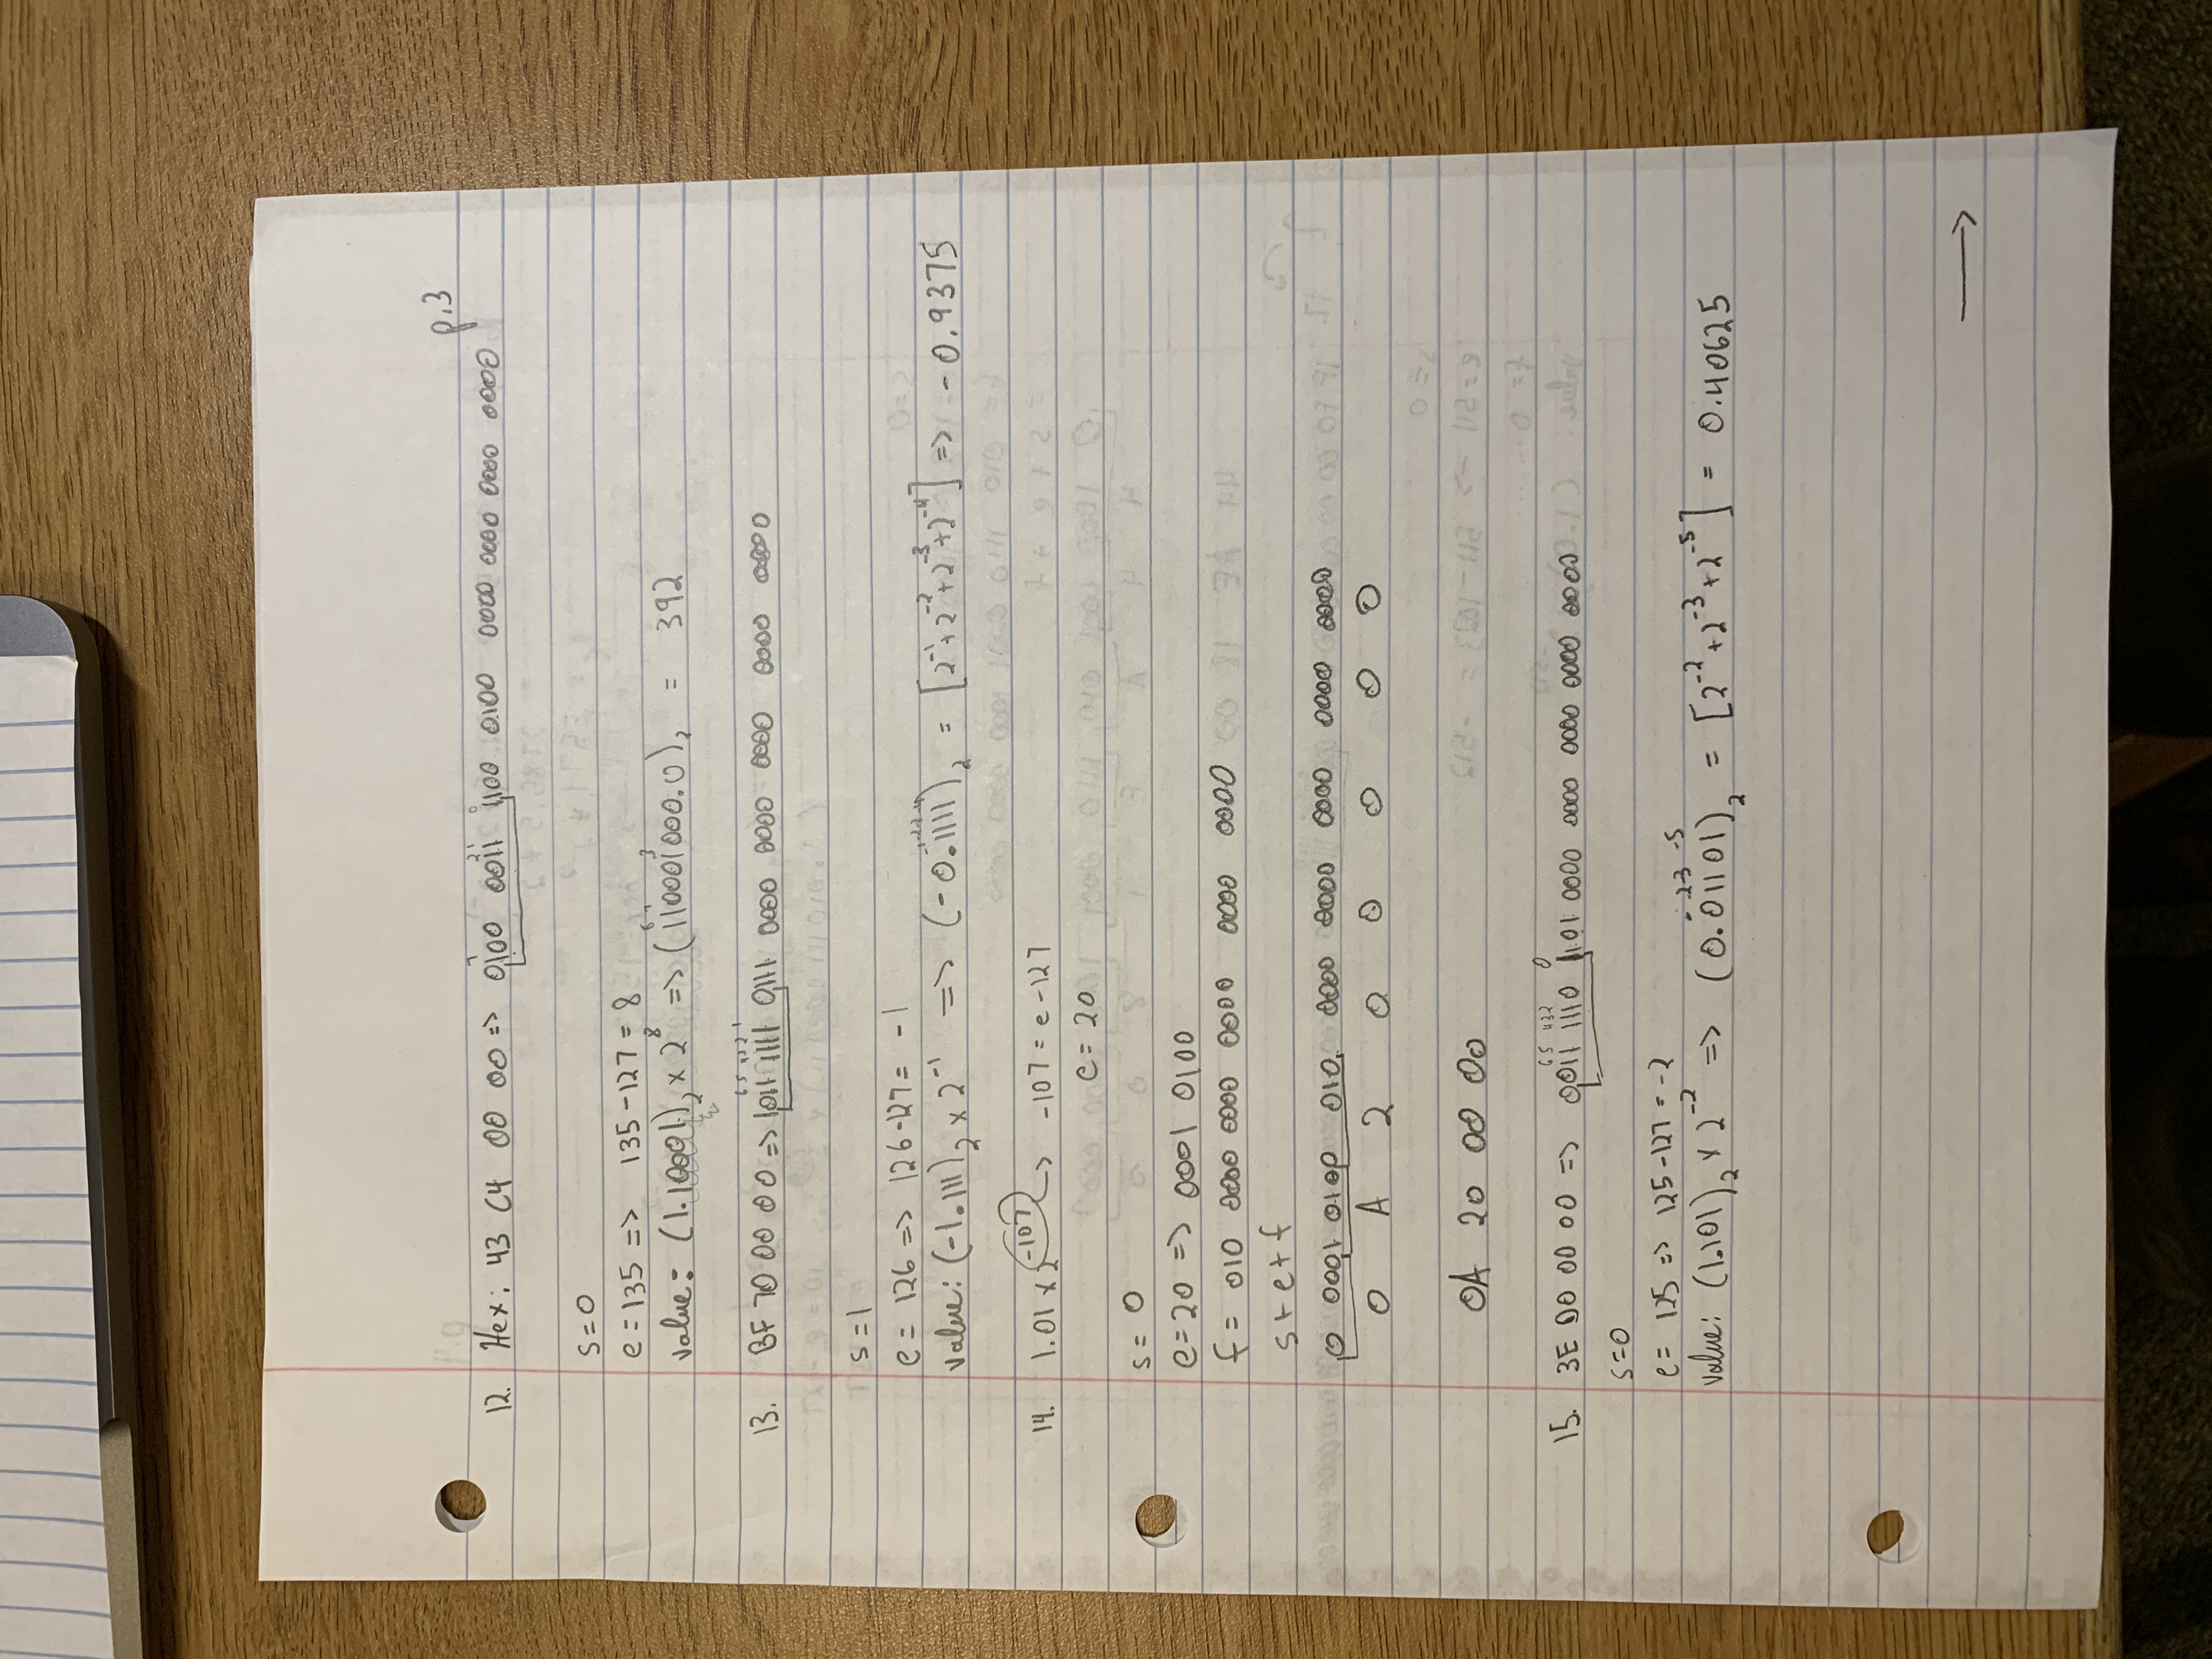 p.3
12. Hex: 43 C4 00 00 => 0100 0011 1100 0100 0000 0000 0000 0000
s=0
e=135 => 135-127=8
value: (1.10001)₂ × 2⁸ => (110001000.0)₂ = 392
13. BF 70 00 00 => 1011 1111 0111 0000 0000 0000 0000 0000
s=1
e= 126 => 126-127= -1
value: (-1.111)₂ × 2⁻¹ => (-0.1111)₂ = [2⁻¹+2⁻²+2⁻³+2⁻⁴] => -0.9375
14. 1.01 × 2⁻¹⁰⁷ -> -107 = e-127
e= 20
s= 0
e=20 => 0001 0100
f= 010 0000 0000 0000 0000 0000
s+e+f
0 0001 0100 010 0000 0000 0000 0000 0000
0 A 2 0 0 0 0 0
0A 20 00 00
15. 3E D0 00 00 => 0011 1110 1101 0000 0000 0000 0000 0000
s=0
e= 125 => 125-127 = -2
value: (1.101)₂ × 2⁻² => (0.01101)₂ = [2⁻²+2⁻³+2⁻⁵] = 0.40625